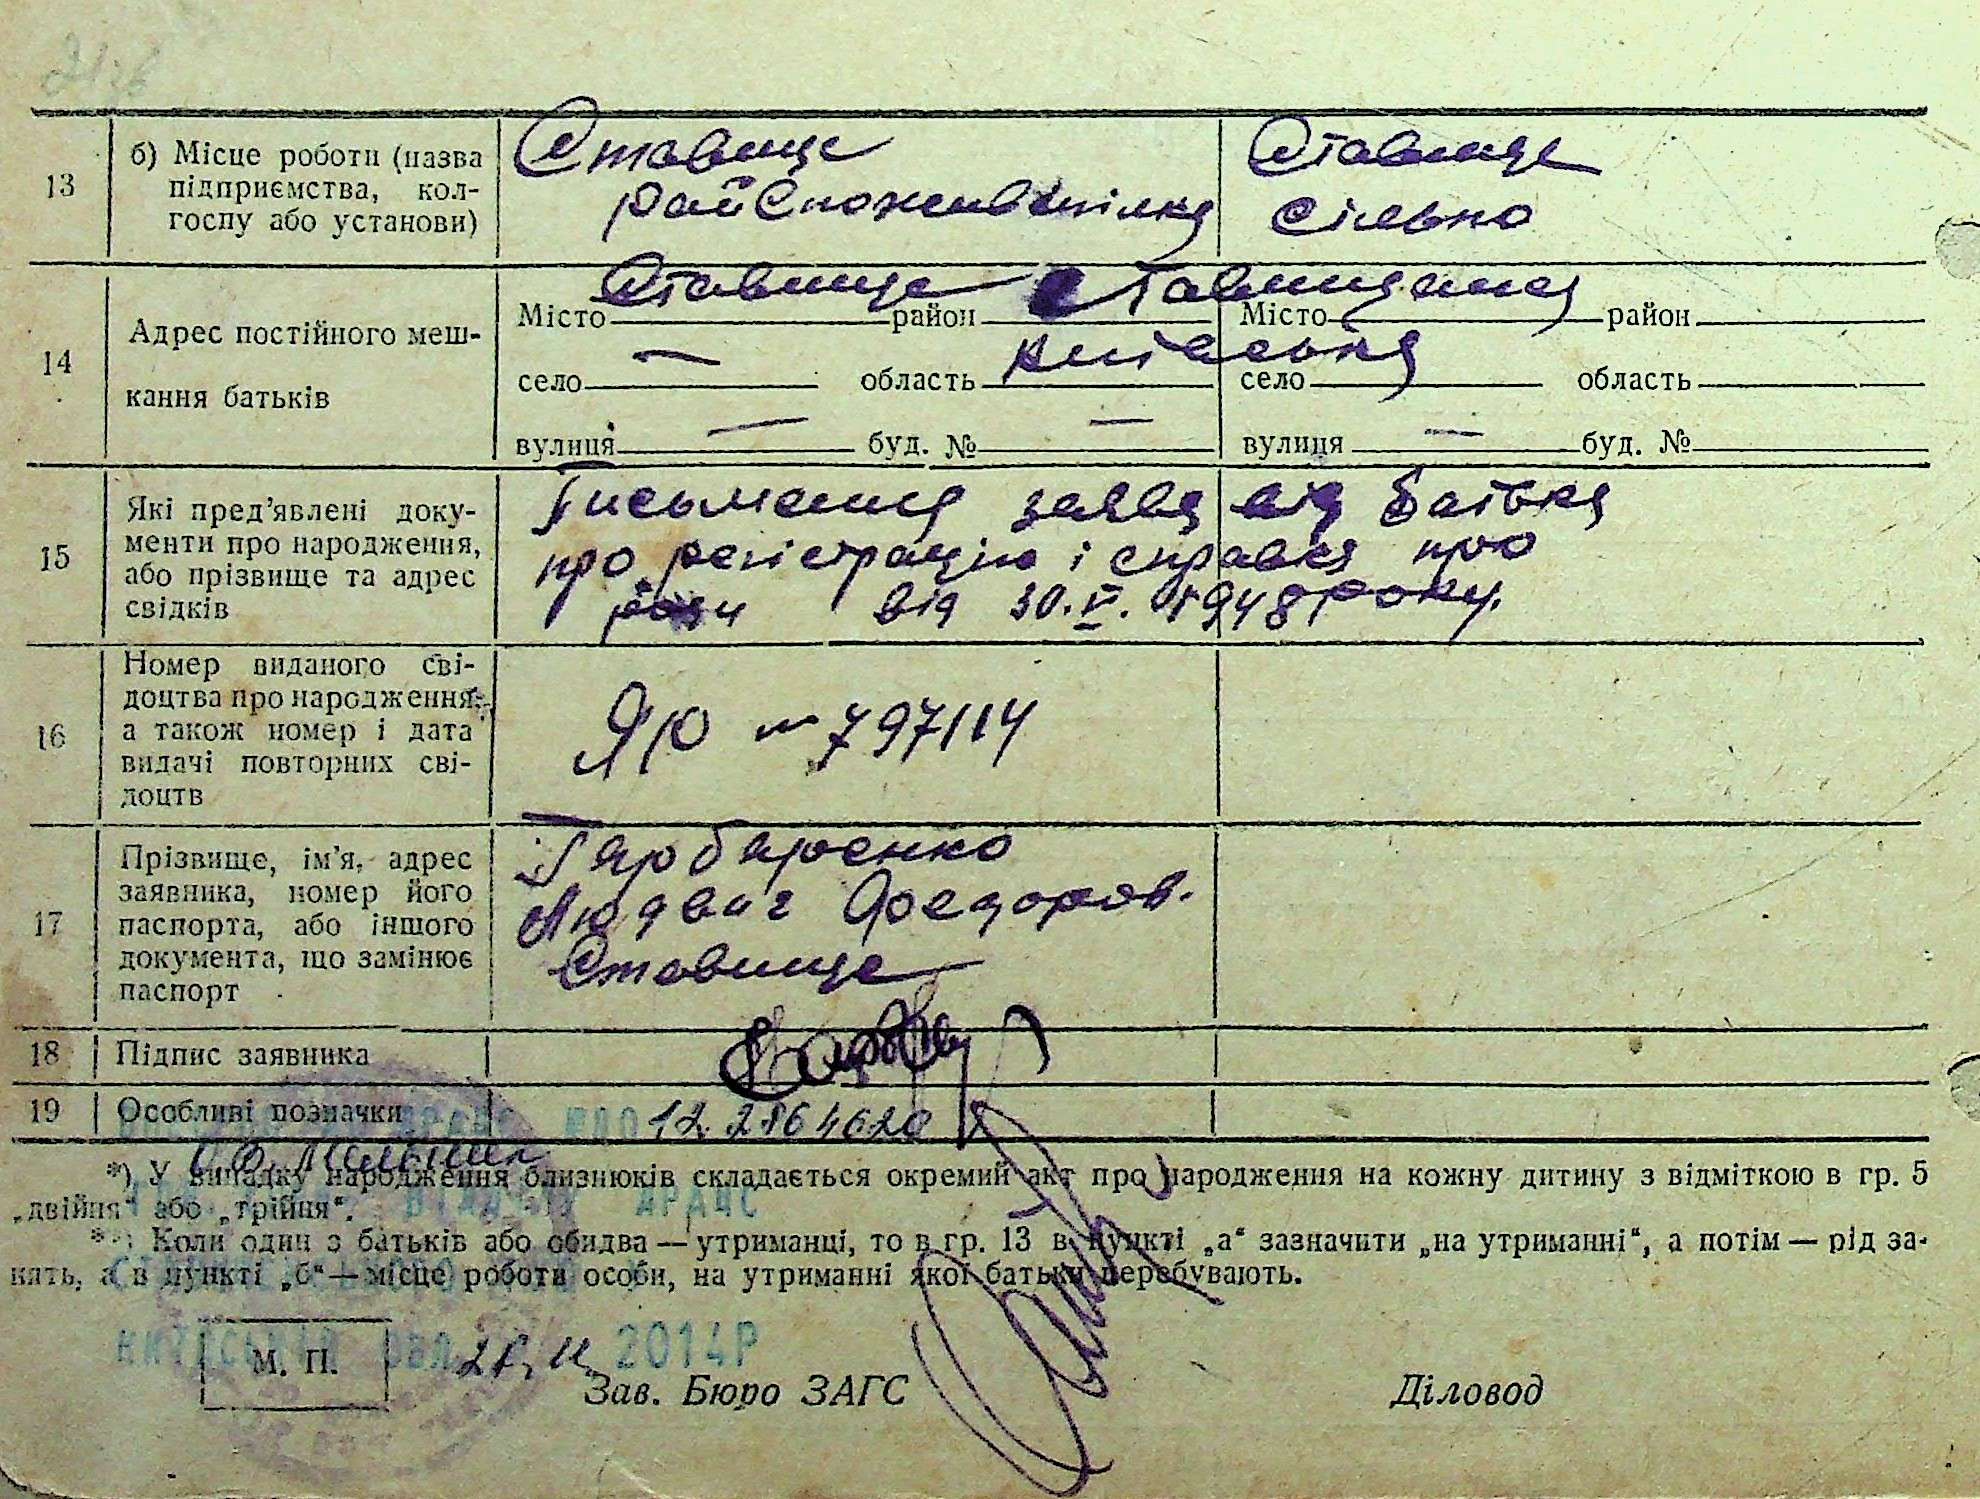 13
б) Місце роботи (назва
підприємства, кол-
госпу або установи)
Ставище
райспоживспілка
Ставище
сільпо
14
Адрес постійного меш-
кання батьків
Місто Ставище район Ставищанский Місто район
село — область Київська село область
вулиця — буд. № — вулиця — буд. №
15
Які пред'явлені доку-
менти про народження,
або прізвище та адрес
свідків
Письменна заява від батька
про регістрацію і справка про
від 30.V. 1948 року.
16
Номер виданого сві-
доцтва про народження,
а також номер і дата
видачі повторних сві-
доцтв
ЯЮ № 797114
17
Прізвище, ім'я, адрес
заявника, номер його
паспорта, або іншого
документа, що замінює
паспорт
Гарбаренко
Людвиг Федоров.
Ставище
18
Підпис заявника
19
Особливі позначки
*) У випадку народження близнюків складається окремий акт про народження на кожну дитину з відміткою в гр. 5
„двійня“ або „трійня“.
**) Коли один з батьків або обидва — утриманці, то в гр. 13 в пункті „а“ зазначити „на утриманні“, а потім — рід за-
нять, а в пункті „б“ — місце роботи особи, на утриманні якої батьки перебувають.
2014р
М. П.
Зав. Бюро ЗАГС
Діловод